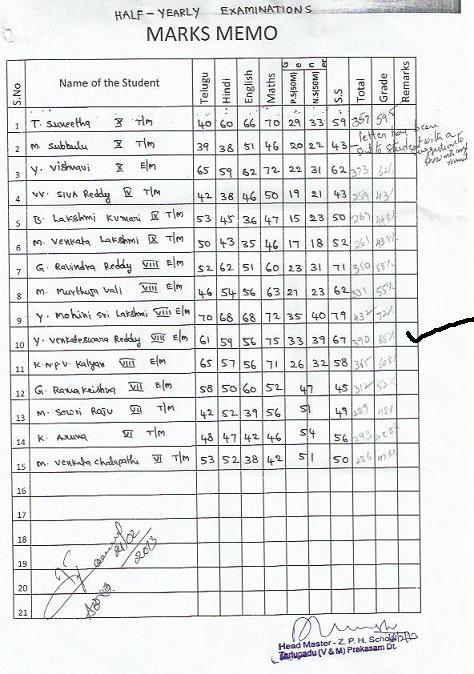 HALF-YEARLY EXAMINATIONS
MARKS MEMO
S.No Name of the Student Telugu Hindi English Maths P.S(50M) N.S(50M) S.S Total Grade Remarks
1 T. Suneetha X T/M 40 60 66 70 29 33 59 357
2 M Subbulu X T/M 39 38 51 46 20 22 43
letter has been
sent to student with a
3 Y. Vishnavi X E/M 65 59 62 72 22 31 62 373
4 VV. SIVA Reddy IX T/M 42 38 46 50 19 21 43 259 43%
5 B. Lakshmi Kumari IX T/M 53 45 36 47 15 23 50 269
6 M. Venkata Lakshmi IX T/M 50 43 35 46 17 18 52 261
7 G. Ravindra Reddy VIII E/M 52 62 51 60 23 31 71 350 58%
8 M. Murthuja Vali VIII E/M 46 54 56 63 21 23 62 55%
9 Y. Mohini Sri Lakshmi VIII E/M 70 68 68 72 35 40 79 432 72%
10 Y. Venkateswara Reddy VIII E/M 61 59 56 75 33 39 67 390 65%
11 K.N.P.V. Kalyan VIII E/M 65 57 56 71 26 32 58 365
12 G. Rama Krishna VII E/M 58 50 60 52 47 45 312 52%
13 M. Sowri Raju VII T/M 42 52 39 56 51 49 289 48%
14 K. Aruna VI T/M 48 47 42 46 54 56 293
15 M. Venkata Chalapathi VI T/M 53 52 38 42 51 50 286
16
17
18
19
20
21
21/02
2013
Head Master - Z. P. H. School
Tarlupadu (V & M) Prakasam Dt.